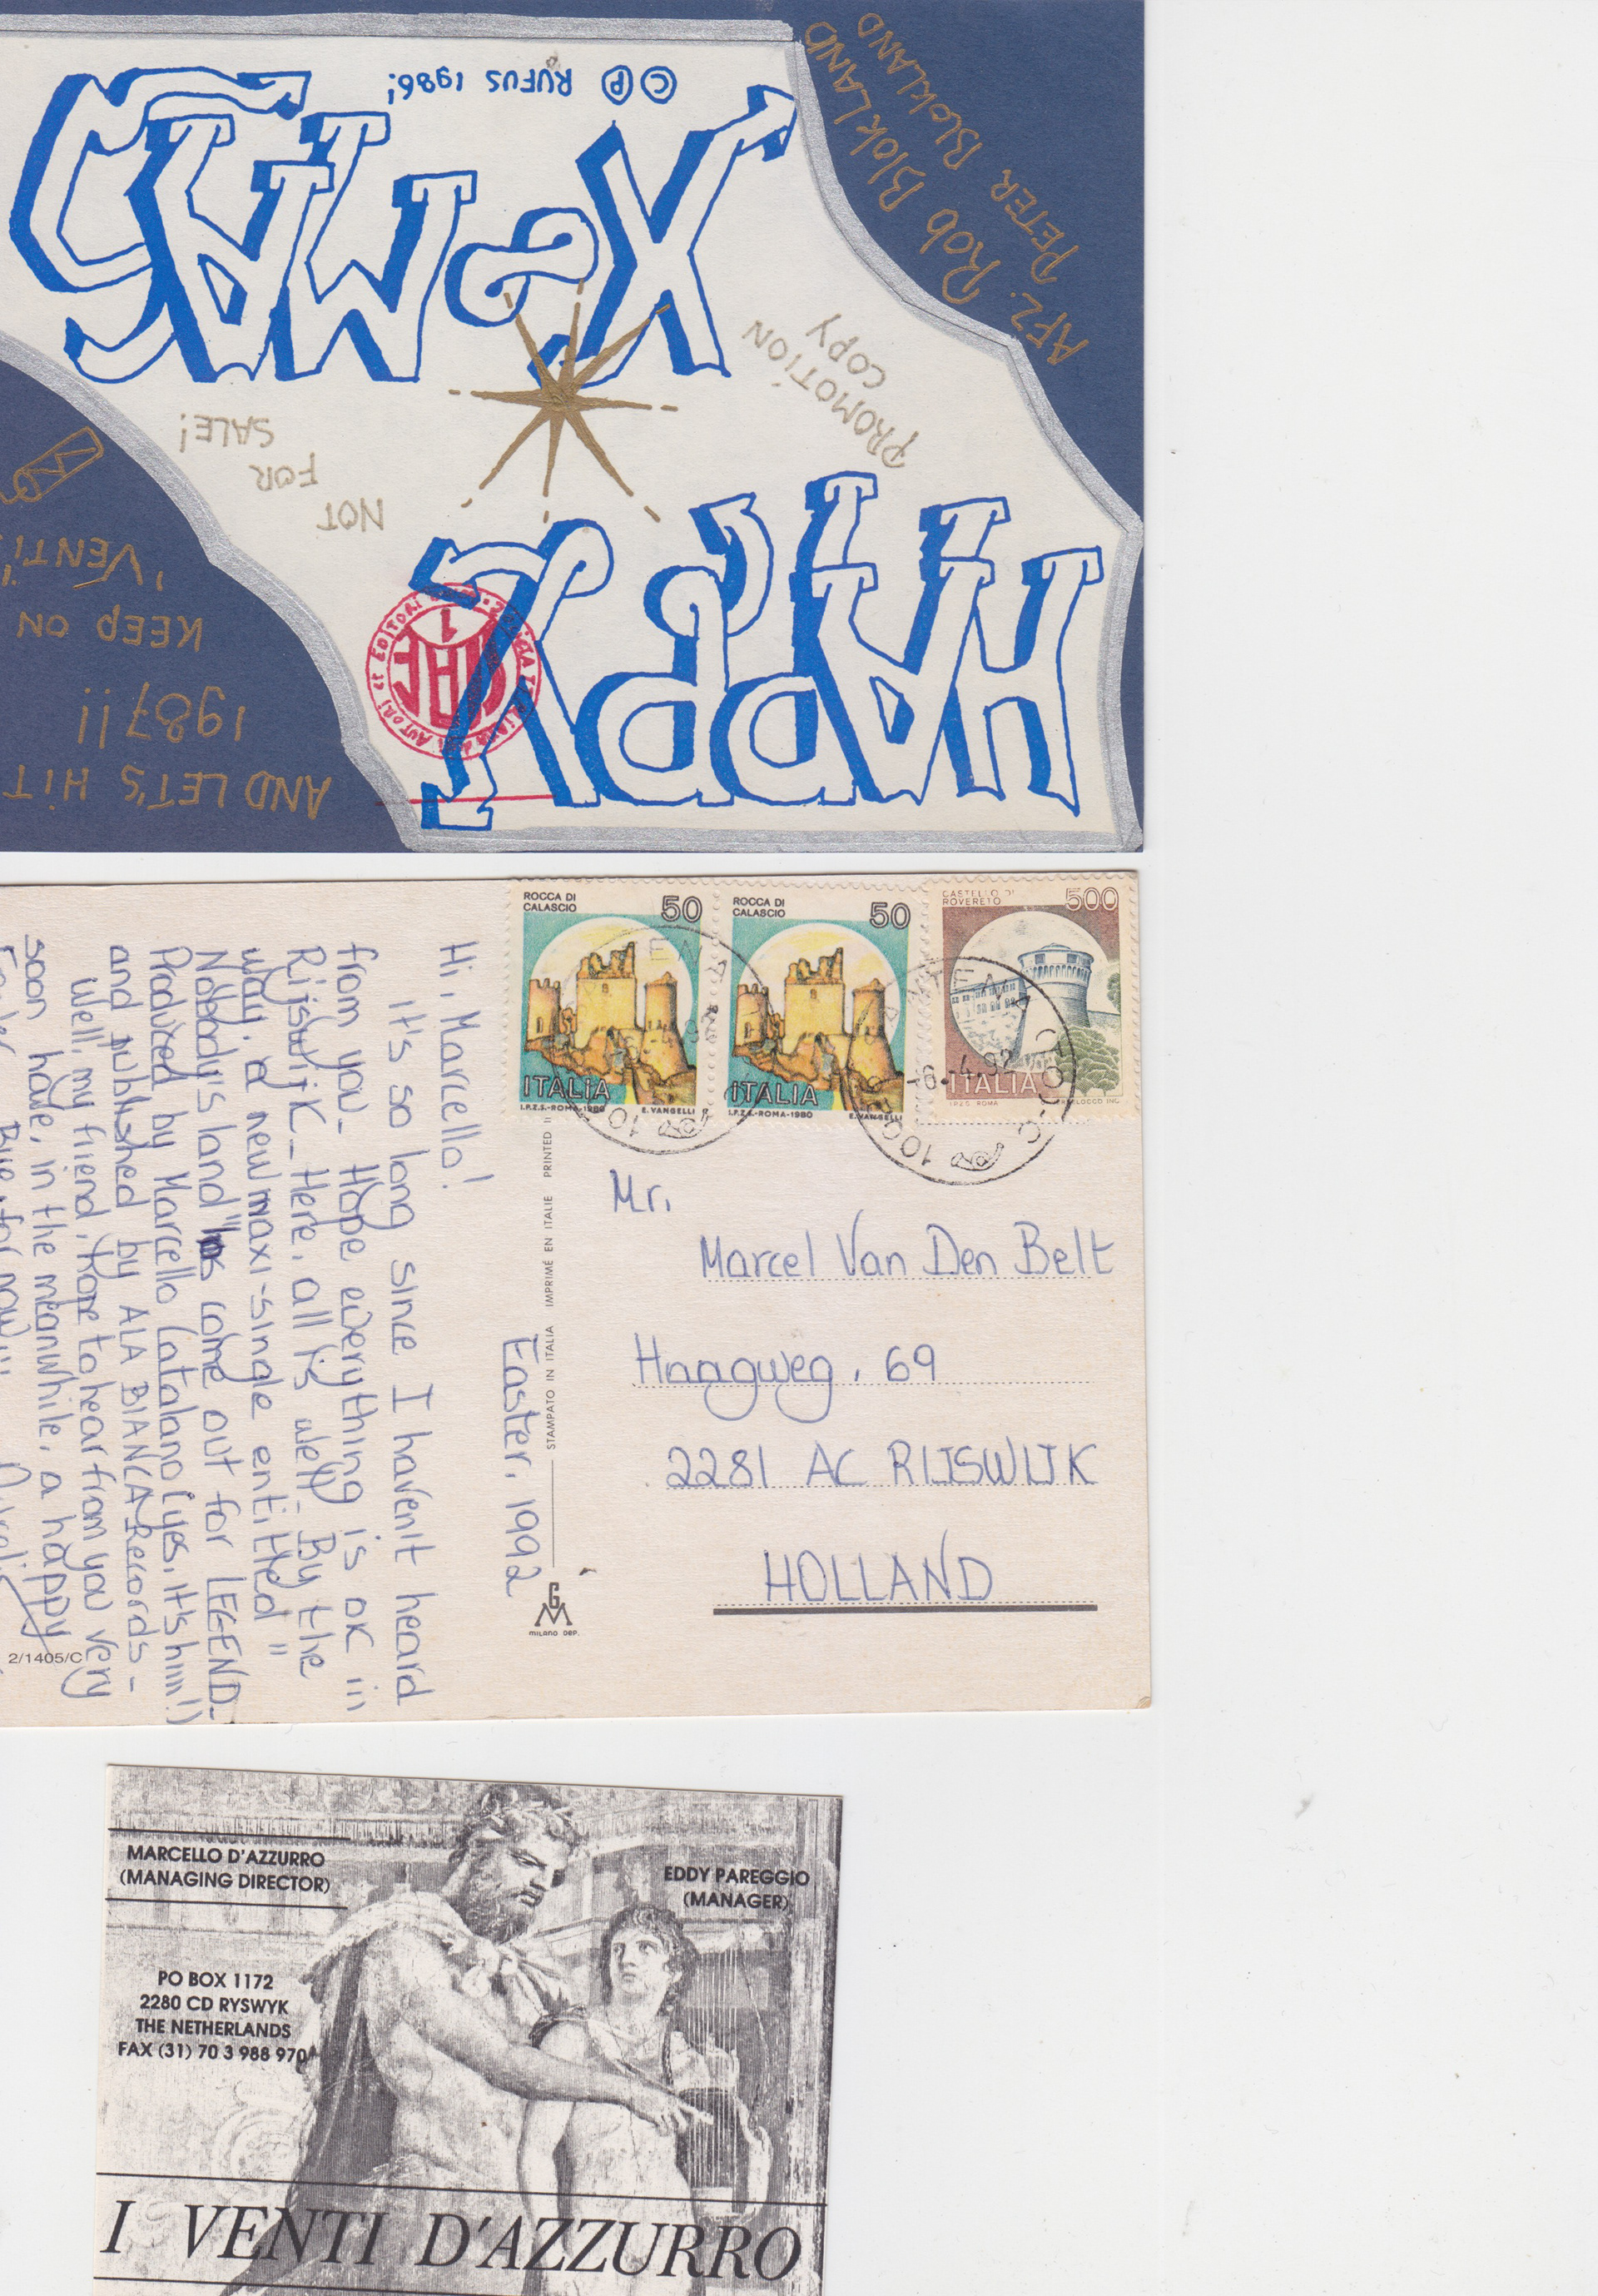 © ℗ RUFUS 1986!
HAPPY
X-MAS
PROMOTION
COPY
NOT
FOR
SALE!
AFZ. Rob BlokLAND
PETER BlokLAND
AND LET'S HIT
1987!!
KEEP ON
'VENTI'
ROCCA DI
CALASCIO
50
ITALIA
I.P.Z.S.-ROMA-1980 E. VANGELLI
ROCCA DI
CALASCIO
50
ITALIA
I.P.Z.S.-ROMA-1980 E. VANGELLI
CASTELLO DI
ROVERETO
500
ITALIA
I.P.Z.S. ROMA
6.-4.92
Easter, 1992
Hi, Marcello!
It's so long since I haven't heard
from you_ Hope everything is ok in
Rijswijk_ Here, all is well_ By the
way, a new maxi-single entitled "
Nobody's land" has come out for LEGEND-
Produced by Marcello Catalano (yes, it's him!)
and published by ALA BIANCA Records-
Well, my friend, hope to hear from you very
soon have, in the meanwhile, a happy
Bye for now!!!
STAMPATO IN ITALIA IMPRIMÉ EN ITALIE PRINTED I
G
M
MILANO DEP.
2/1405/C
Mr.
Marcel Van Den Belt
Haagweg, 69
2281 AC RIJSWIJK
HOLLAND
MARCELLO D'AZZURRO
(MANAGING DIRECTOR)
EDDY PAREGGIO
(MANAGER)
PO BOX 1172
2280 CD RYSWYK
THE NETHERLANDS
FAX (31) 70 3 988 970
I VENTI D'AZZURRO